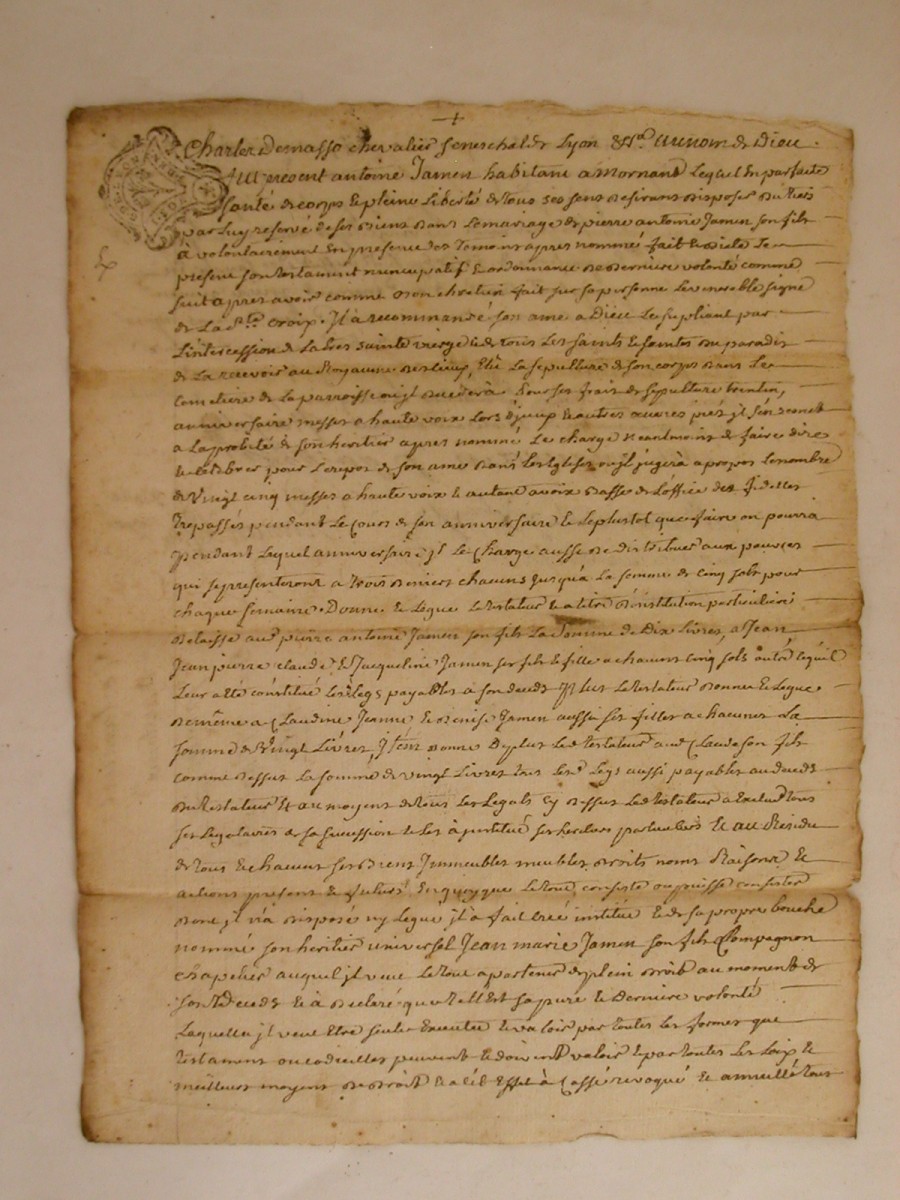 Charles Demasso chevalier seneschal de Lyon &a. au nom de Dieu.
fut present antoine Jamen habitant a Mornand Lequel En parfaite
santé de corps & pleine Liberté de tous ses sens desirant disposer du
par Luy reservé de ses biens dans Le mariage de pierre antoine Jamen son fils
à volontairement En presence des temoins apres nommé fait & dicté Le
present son testament nuncupatif & ordonnance de derniere volonté comme
suit apres avoir comme bon chretien fait sur sa personne Le venerable signe
de La Ste croix. Jl à recommandé son ame a Dieu Le supliant par
L'intercession de La tres sainte vierge & de tous Les saints & saintes du paradis
de La recevoir au Royaume des cieux, Elû La sepulture de son corps dans Le
cimetiere de La parroisse ou jl decedera Pour ses frais de sepulture trentin,
anniversaire messes a haute voix Lors d'jceux & autres œuvres pies jl s'en remet
a La probité de son heritier apres nommé Le charge neantmoins de faire dire
& celebrer pour Le repos de son ame dans Les Eglises ou jl jugera a propos Le nombre
de vingt cinq messes a haute voix & autant a voix basse de L'office des fidelles
trepassés pendant Le cours de son anniversaire & Le plustot que faire on pourra
pendant Lequel anniversaire jl Le charge aussi de distribuer aux pauvres
qui se presenteront a trois deniers chacuns jusqu'à La somme de cinq sols pour
chaque semaine. Donne & Legue Le testateur & a titre d'institution particuliere
delaisse aud. pierre antoine Jamen son fils La somme de Dix Livres, a Jean
Jean pierre claude & Jacqueline Jamen ses fils & fille a chacuns cinq sols outre ce qu'il
Leur a eté constitué Les Legs payables a son deceds Plus Le testateur donne & Legue
de même a Claudine Jeanne & Denise Jamen aussi ses filles a chacunes La
somme de vingt Livres, Jtem donne de plus Led. testateur aud. Claude son fils
comme dessus La somme de vingt Livres tous Lesd. Legs aussi payables au deceds
du testateur Et au moyent de tous Les Legats cy dessus Led. testateur a Exclud tous
ses Legataires de sa succession & Les à jnstitué ses heritiers particuliers Et au Residu
de tous & chacuns ses biens Jmmeubles meubles droits noms Raisons &
actions presents & futurs En quoyque Le tout consiste ou puisse consister
dont jl n'a disposé ny Legué jl a fait creé institué & de sa propre bouche
nommé son heritier universel Jean marie Jamen son fils Compagnon
chapelier auquel jl veut Le tout apartenir de plein droit au moment de
son deceds & à declaré que telle Est sa pure & Derniere volonté
Laquelle jl veut Etre seule Executée & valoir par toutes Les formes que
testament ou codicilles peuvent & doivent valoir & par toutes Les Loix &
meilleurs moyens de droit & a cet Effet à Cassé revoqué & annullé tous